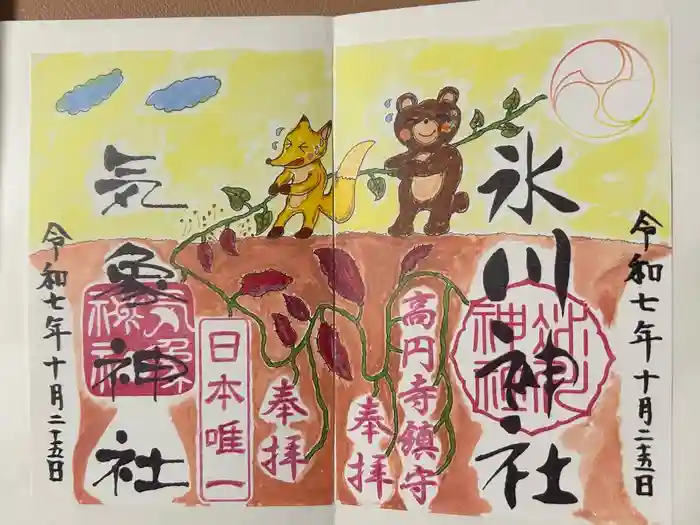 令和七年十月二十五日
氷川神社
高円寺鎮守
奉拝
奉拝
日本唯一
気象神社
令和七年十月二十五日